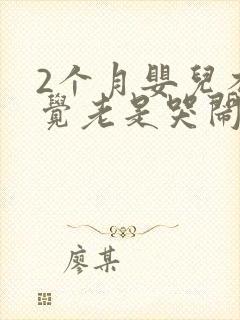 2个月嬰兒
覺老是哭鬧
廖某